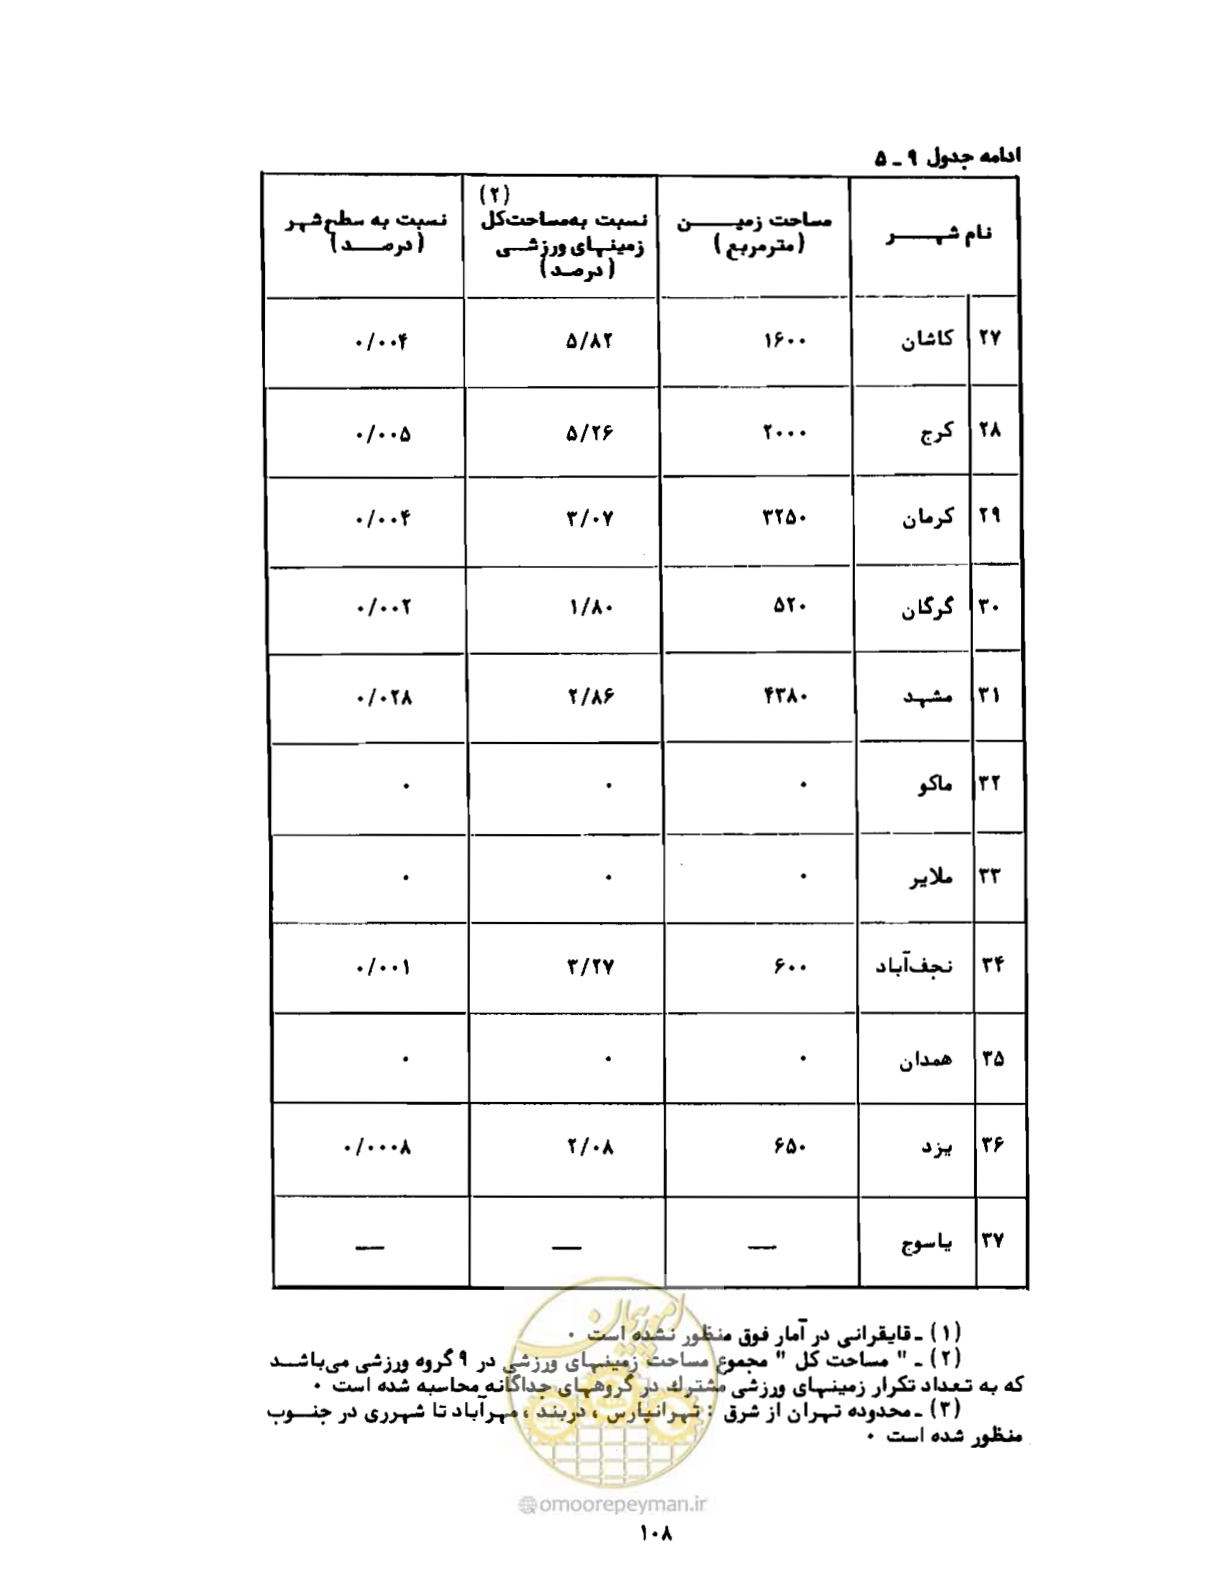 ادامه جدول ۹ ـ ۵
نام شهر مساحت زمین (مترمربع) نسبت به مساحت کل زمینهای ورزشی (درصد) (۲) نسبت به سطح شهر (درصد)
۲۷ کاشان ۱۶۰۰ ۵/۸۲ ۰/۰۰۴
۲۸ کرج ۲۰۰۰ ۵/۲۶ ۰/۰۰۵
۲۹ کرمان ۳۲۵۰ ۳/۰۷ ۰/۰۰۴
۳۰ گرگان ۵۲۰ ۱/۸۰ ۰/۰۰۲
۳۱ مشهد ۴۳۸۰ ۲/۸۶ ۰/۰۲۸
۳۲ ماکو ۰ ۰ ۰
۳۳ ملایر ۰ ۰ ۰
۳۴ نجف‌آباد ۶۰۰ ۳/۲۷ ۰/۰۰۱
۳۵ همدان ۰ ۰ ۰
۳۶ یزد ۶۵۰ ۲/۰۸ ۰/۰۰۰۸
۳۷ یاسوج — — —
(۱) ـ قایقرانی در آمار فوق منظور نشده است ۰
(۲) ـ " مساحت کل " مجموع مساحت زمینهای ورزشی در ۹ گروه ورزشی می‌باشد
که به تعداد تکرار زمینهای ورزشی مشترک در گروههای جداگانه محاسبه شده است ۰
(۳) ـ محدوده تهران از شرق : تهرانپارس ، دربند ، مهرآباد تا شهرری در جنوب
منظور شده است ۰
امور پیمان
@omoorepeyman.ir
۱۰۸